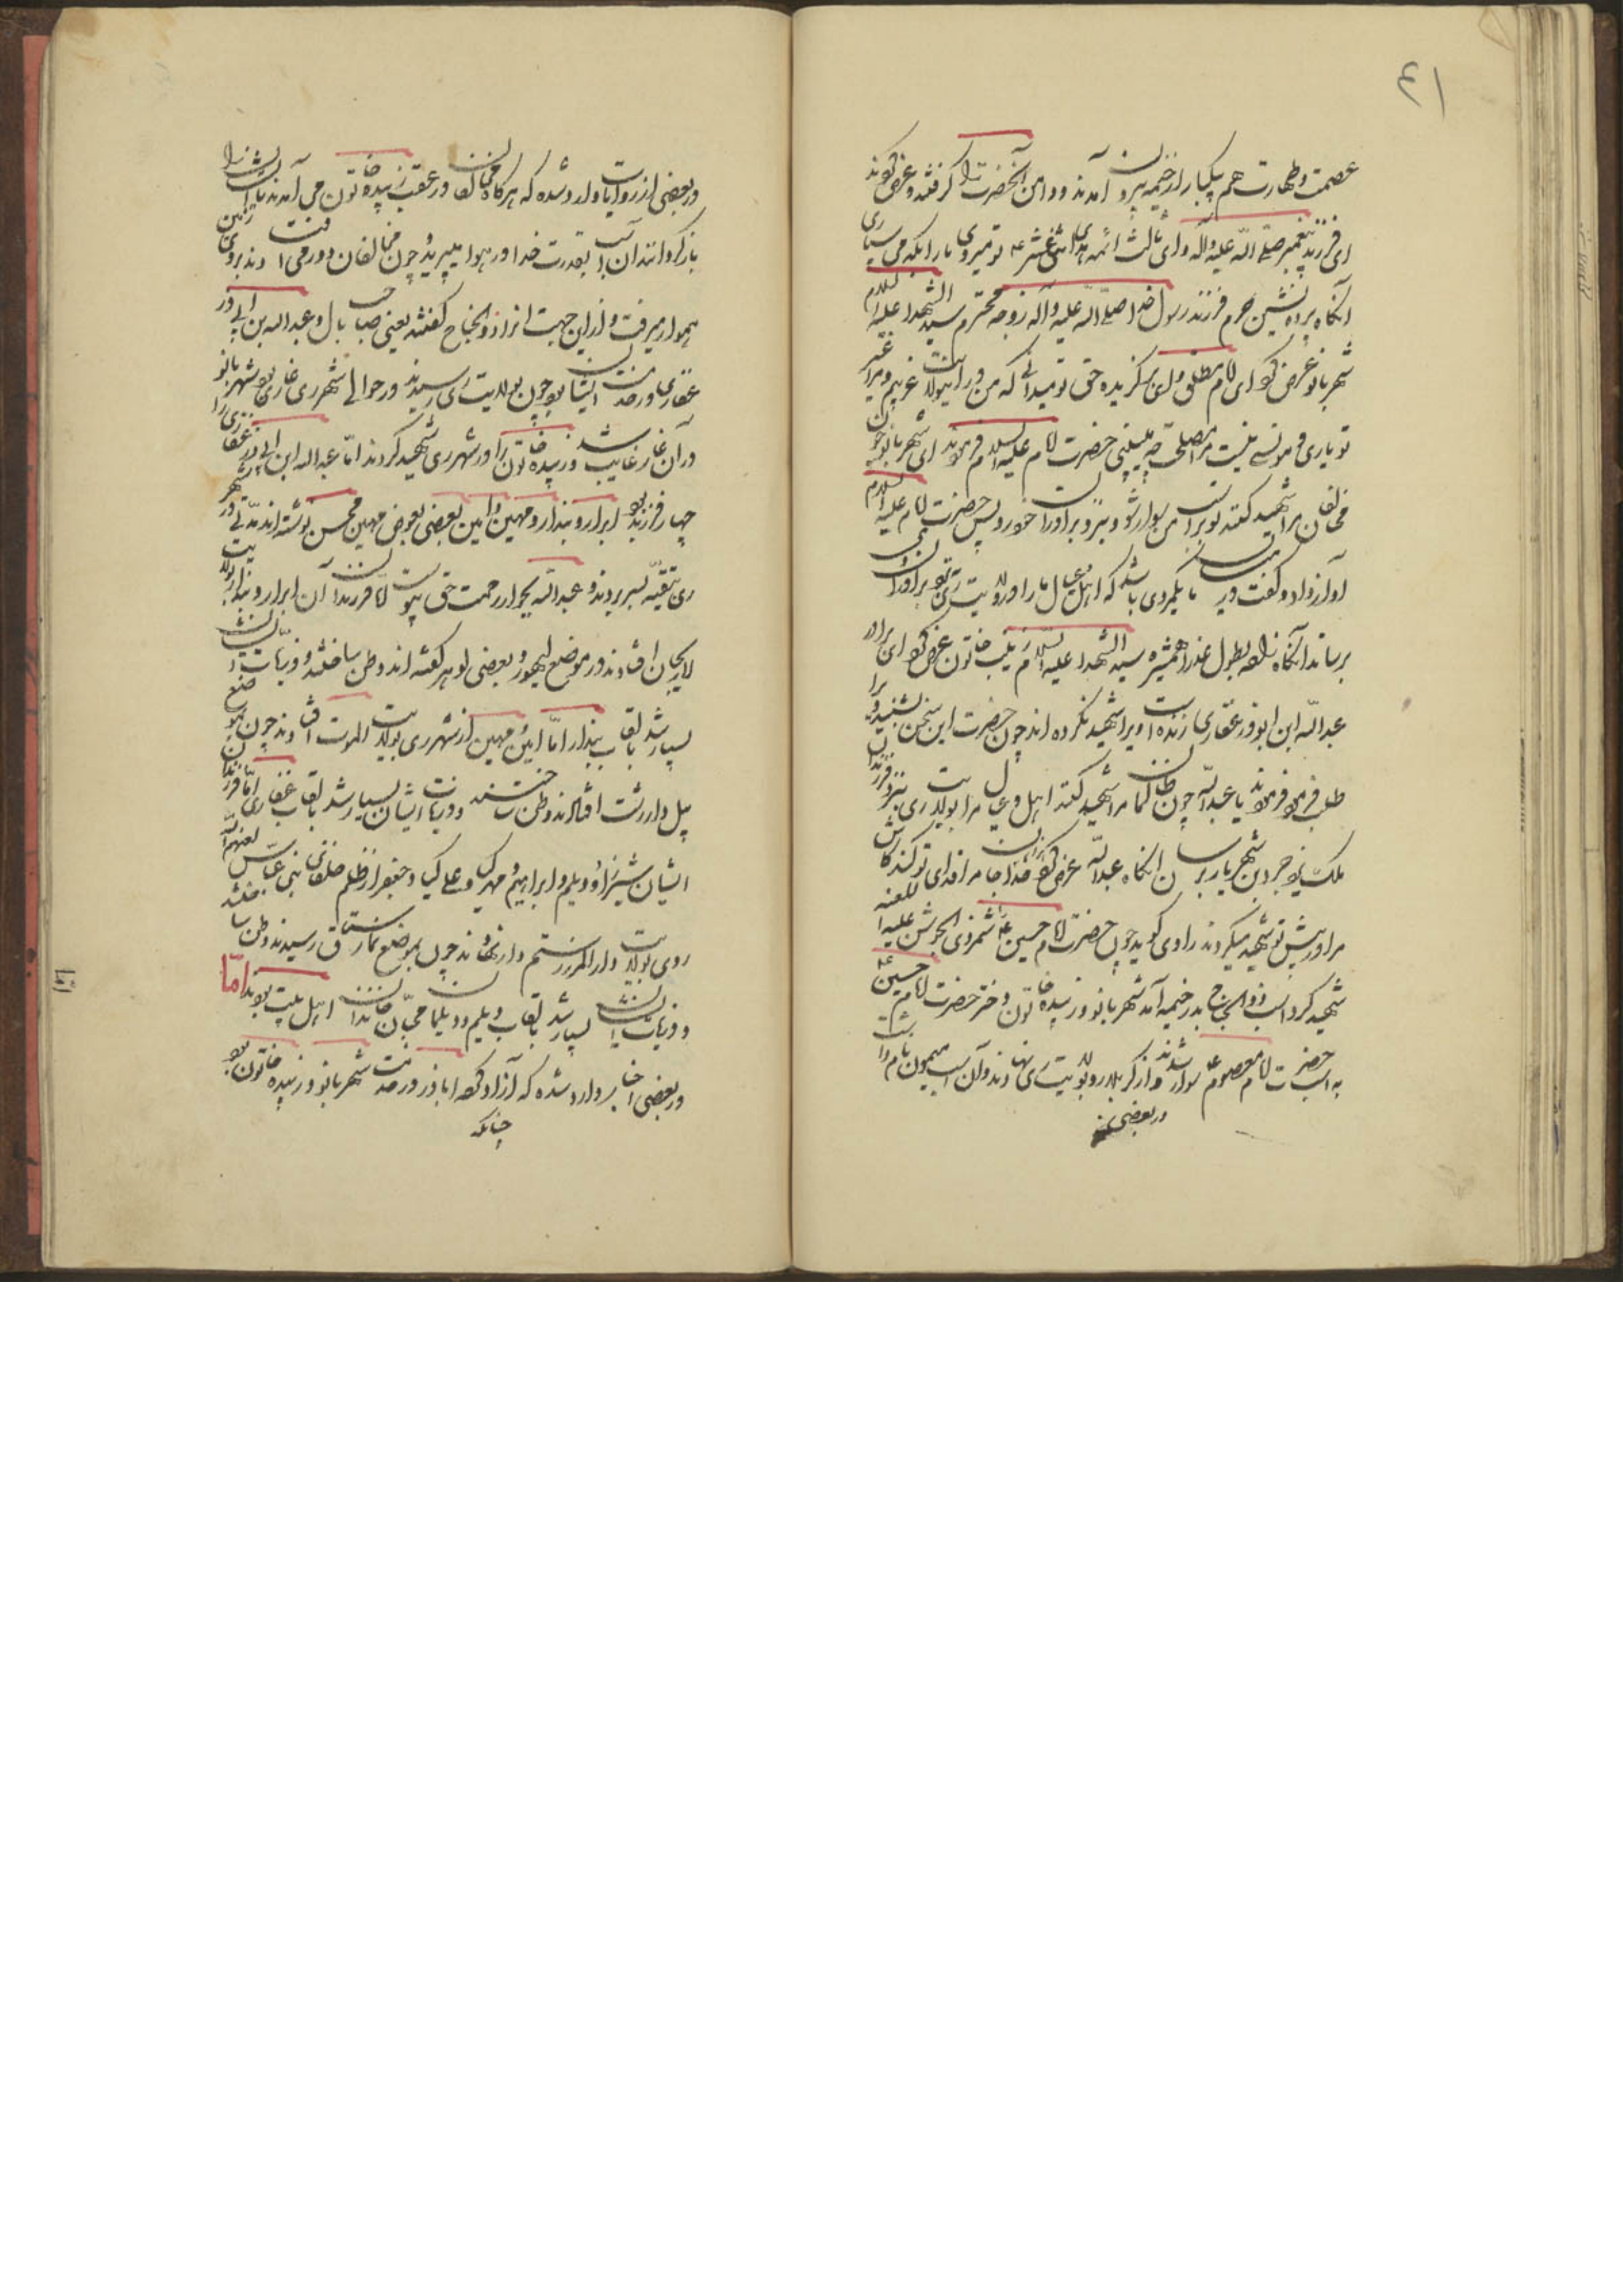 ٤١
عصمت و طهارت هم یکبار از خیمه بیرون آمدند و دامن آنحضرت را گرفتند و عرض کردند
ای فرزند پیغمبر صلی الله علیه و آله و ای ثالث ائمه هدی اثنی عشر ع تو میروی ما را بکه می سپاری
آنگاه پرده نشین حرم فرزند رسول خدا صلی الله علیه و آله زوجه محترم سید الشهدا علیه السلام
شهربانو عرض کرد ای امام مطلق ولی برگزیده حق تو میدانی که من در این ولایت غریبم و مرا غیر
تو یاری و مونسی نیست مرا مصلحت چه میبینی حضرت امام علیه السلام فرمودند ای شهربانو چون
مخالفان مرا شهید کنند تو بر اسب من سوار شو و بنزد برادران خود رو پس حضرت امام علیه السلام
او آواز داد و گفت در ما یکمردی باشد که اهل عیال ما را در ولایت ری نزد برادران
برساند آنگاه همشیره سید الشهدا علیه السلام زینب خاتون عرض کرد ای برادر
عبدالله ابن ابوذر غفاری زنده است و او را شهید نکرده اند چون حضرت این سخن بشنید ویرا
طلب فرمود فرمودند یا عبدالله چون ظالمان مرا شهید کنند اهل و عیال مرا بولایت ری بنزد فرزندان
ملک یزدجرد بن شهریار برسان آنگاه عبدالله عرض کرد خداوندا جان مرا فدای تو کند کاش
مرا در پیش تو شهید میکردند راوی گوید چون حضرت امام حسین ع شمر ذی الجوشن علیه اللعنه
شهید کرد اسب ذوالجناح بدر خیمه آمد شهربانو و زبیده خاتون دختر حضرت امام حسین ع
به اسب حضرت امام معصوم ع سوار شدند و از کربلا رو بولایت ری نهادند و آن اسب میمون نام داشت
در بعضی
و در بعضی از روایات وارد شده که هرگاه مخالفان در عقب زبیده خاتون می آمدند تا ایشان را
باز گردانند آن اسب بقدرت خدا در هوا میپرید و چون مخالفان دور می افتادند بروی زمین
هموار میرفت و از این جهت او را ذوالجناح گفتند یعنی صاحب بال و عبدالله بن ابی ذر
غفاری در خدمت ایشان بود چون بولایت ری رسیدند در حوالی شهر ری غاری بود شهربانو
در آن غار غایب شد و زبیده خاتون را در شهر ری شهید کردند اما عبدالله ابن ابی ذر غفاری را
چهار فرزند بود ابرار و بندار و مهین و امین بعضی بعوض مهین محسن نوشته اند مدتی در شهر
ری بتقیه بسر بردند و عبدالله بجوار رحمت حق پیوست اما فرزندان آن ابرار و بندار بولایت
لاریجان افتادند در موضع لیهور و بعضی لوهر گفته اند وطن ساختند و ذریات ایشان
بسیار شد بالقاب بندار اما امین و مهین از شهر ری بولایت الموت افتادند چون بموضع
پل دار رشت افتادند و وطن ساختند و ذریات ایشان بسیار شد بالقاب غفاری اما فرزندان
ایشان شیرزاد و دیلم و ابراهیم و مهدی و علی کیا و جعفر از ظلم خلفای بنی عباس لعنهم الله
روی بولایت دارالمرز رستمدار نهادند چون بموضع نمارستاق رسیدند وطن ساختند
و ذریات ایشان بسیار شد بالقاب دیلم و دیلمان محبان خاندان اهل بیت بودند اما
در بعضی اخبار وارد شده که آزاد کرده اباذر در خدمت شهربانو و زبیده خاتون بود
چنانکه